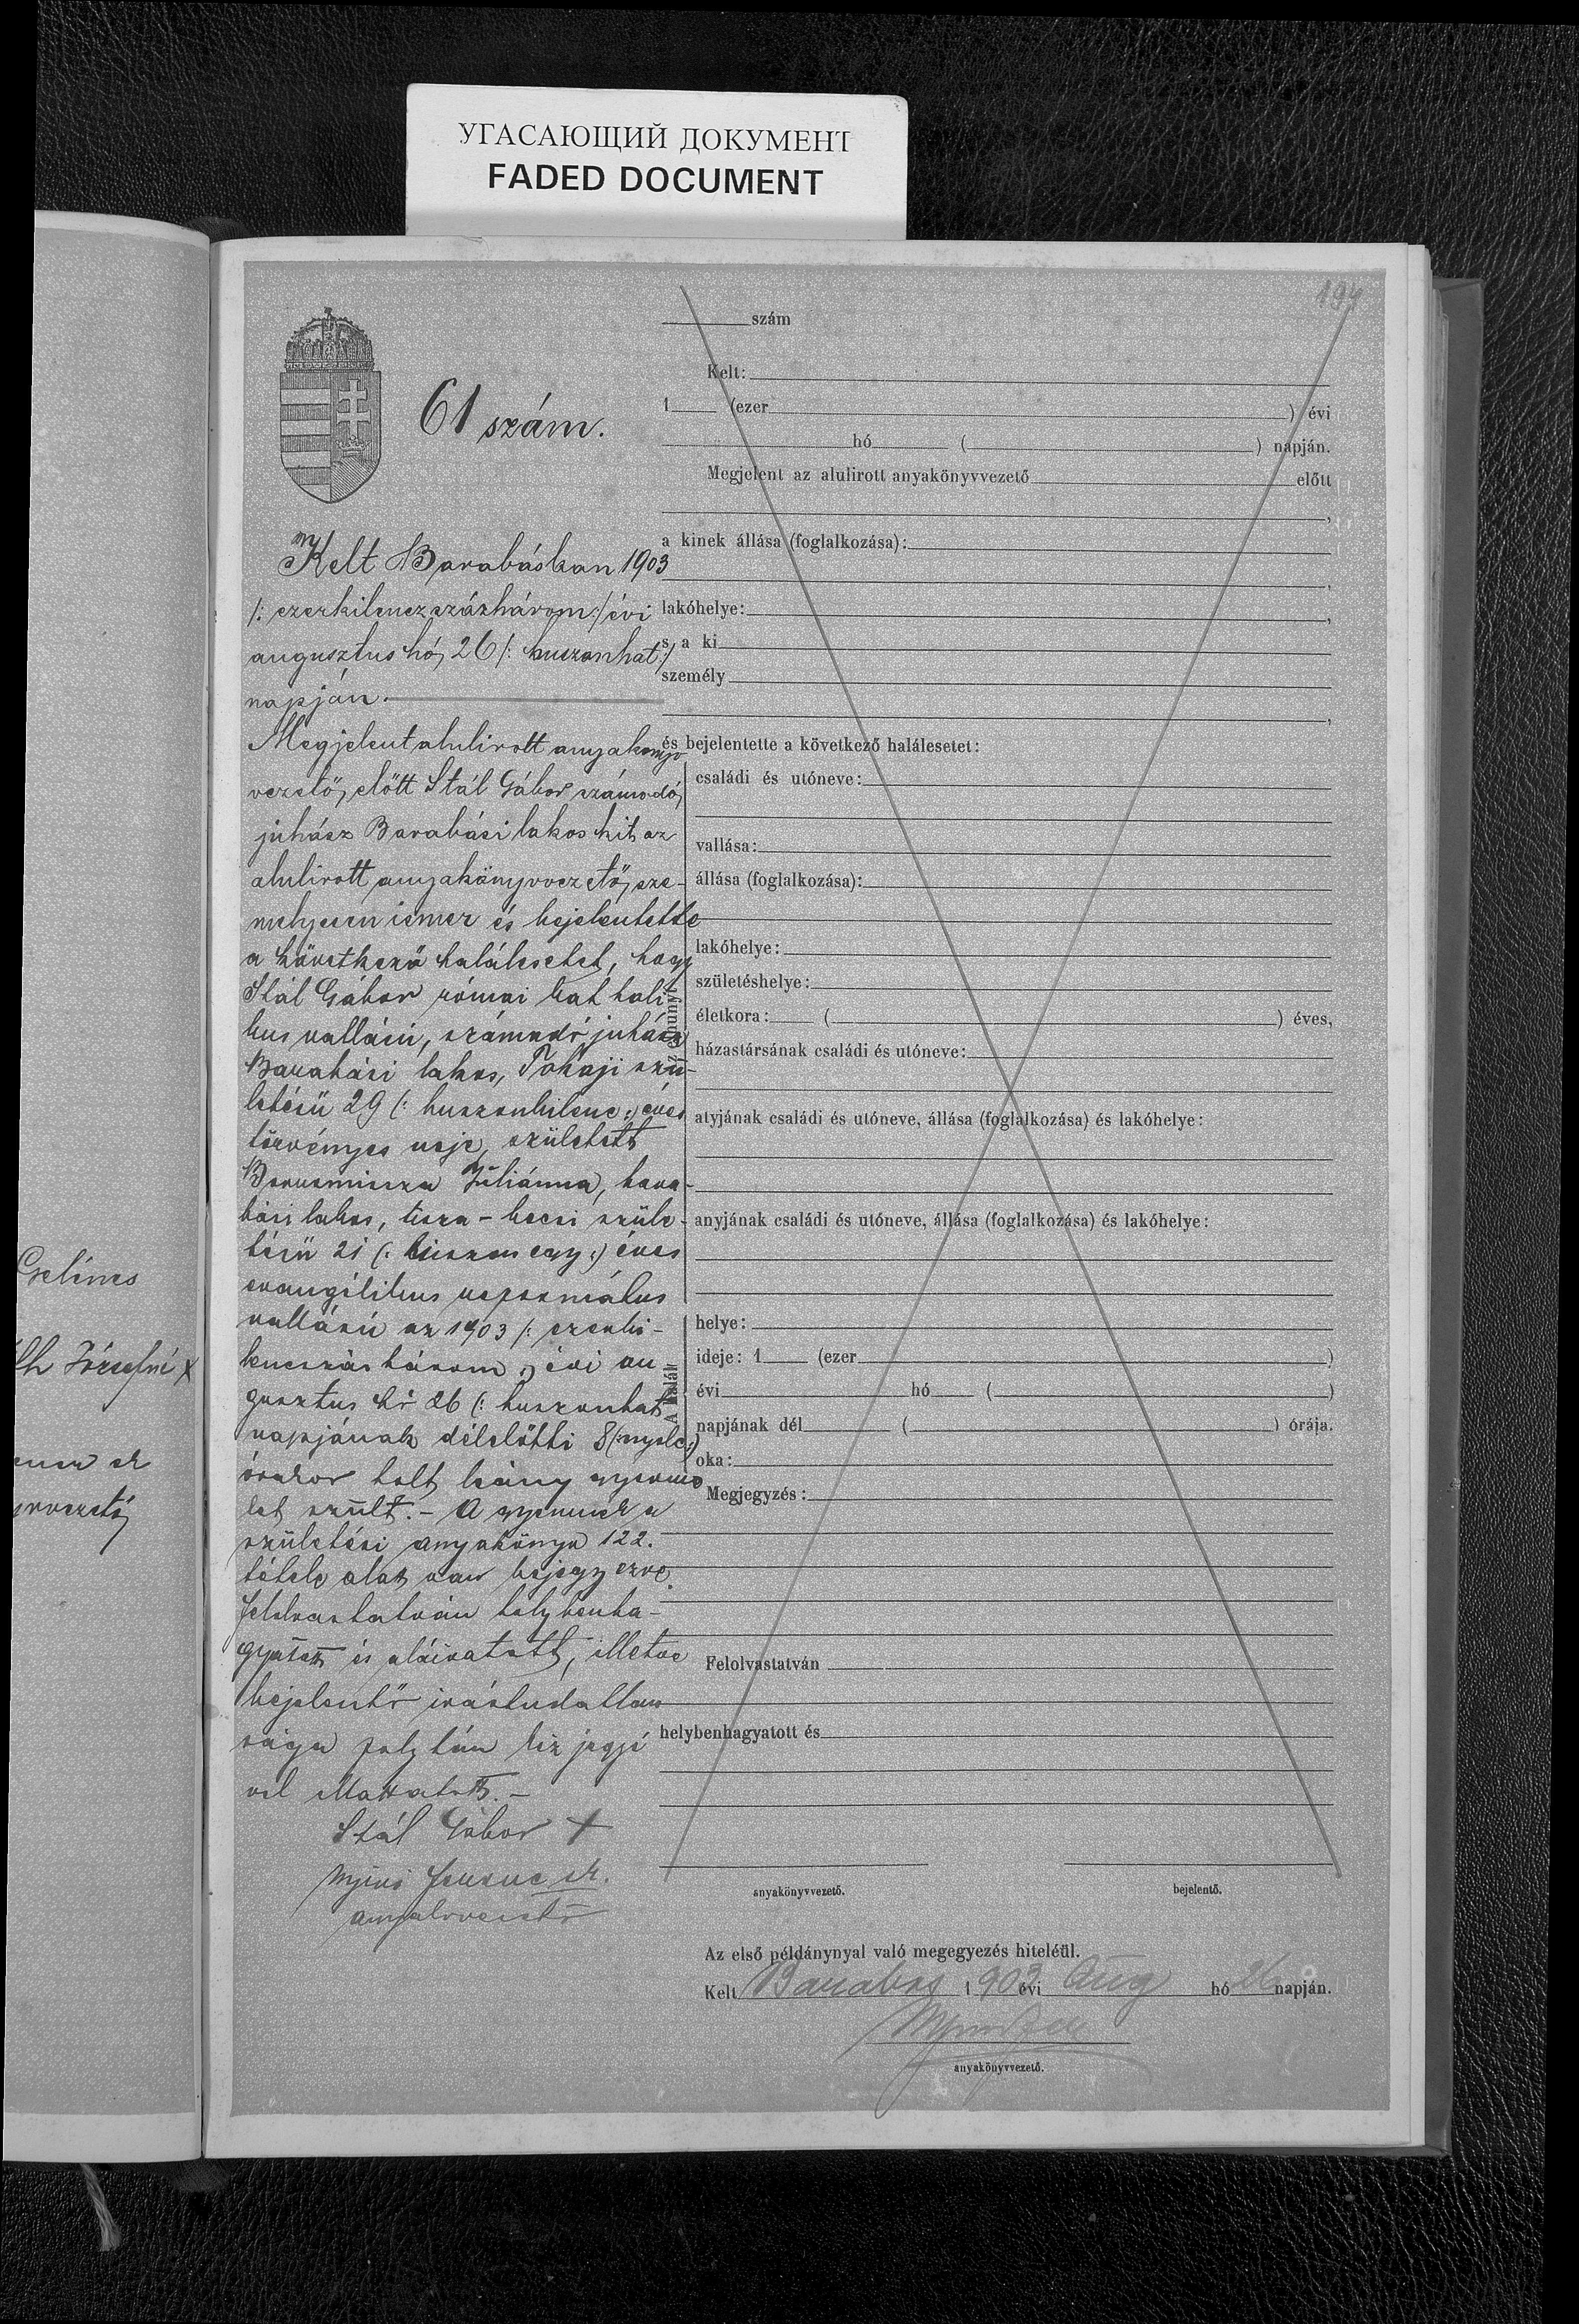 УГАСАЮЩИЙ ДОКУМЕНТ
FADED DOCUMENT
194
61 szám.
Kelt Barabásban 1903
/: ezerkilenczszázhárom :/ évi
augusztus hó 26 /: huszonhat :/
napján.
Megjelent alulirott anyakönyv
vezető, előtt Stál Gábor számadó
juhász Barabási lakos kit az
alulirott anyakönyvvezető, sze-
mélyesen ismer és bejelentette
a következő halálesetet, hogy
Stál Gábor római katholi
kus vallású, számadó juhász
Barabási lakos, Tokaji szü-
letésü 29 (: huszonkilenc :) éves
törvényes neje, született
Bornemisza Juliánna, bara-
bási lakos, tisza-becsi szüle-
tésü 21 (: huszonegy :) éves
evangélikus református
vallású az 1903 /: ezerki-
lencszázhárom :) évi au
gusztus hó 26 (: huszonhat
napjának délelőtti 8 (: nyolc :)
órakor holt leány gyerme
ket szült. - A gyermek a
születési anyakönyv 122.
tétele alat van bejegyezve.
Felolvastatván helybenha-
gyatott és aláiratott, illetve
bejelentő irástudatlan
sága folytán kéz jegyé
vel ellátatott. -
Stál Gábor +
Ferenc sk.
anyakvvezető
szám
Kelt:
1 (ezer ) évi
hó ( ) napján.
Megjelent az alulirott anyakönyvvezető előtt
,
a kinek állása (foglalkozása):
,
lakóhelye: ,
s a ki
személy
,
és bejelentette a következő halálesetet:
Az elhunyt
családi és utóneve:
vallása:
állása (foglalkozása):
lakóhelye:
születéshelye:
életkora: ( ) éves,
házastársának családi és utóneve:
atyjának családi és utóneve, állása (foglalkozása) és lakóhelye:
anyjának családi és utóneve, állása (foglalkozása) és lakóhelye:
A halál
helye:
ideje: 1 (ezer )
évi hó ( )
napjának dél ( ) órája.
oka:
Megjegyzés:
Felolvastatván
helybenhagyatott és
anyakönyvvezető. bejelentő.
Az első példánynyal való megegyezés hiteléül.
Kelt Barabás 1903 évi Aug hó 26 napján.
anyakönyvvezető.